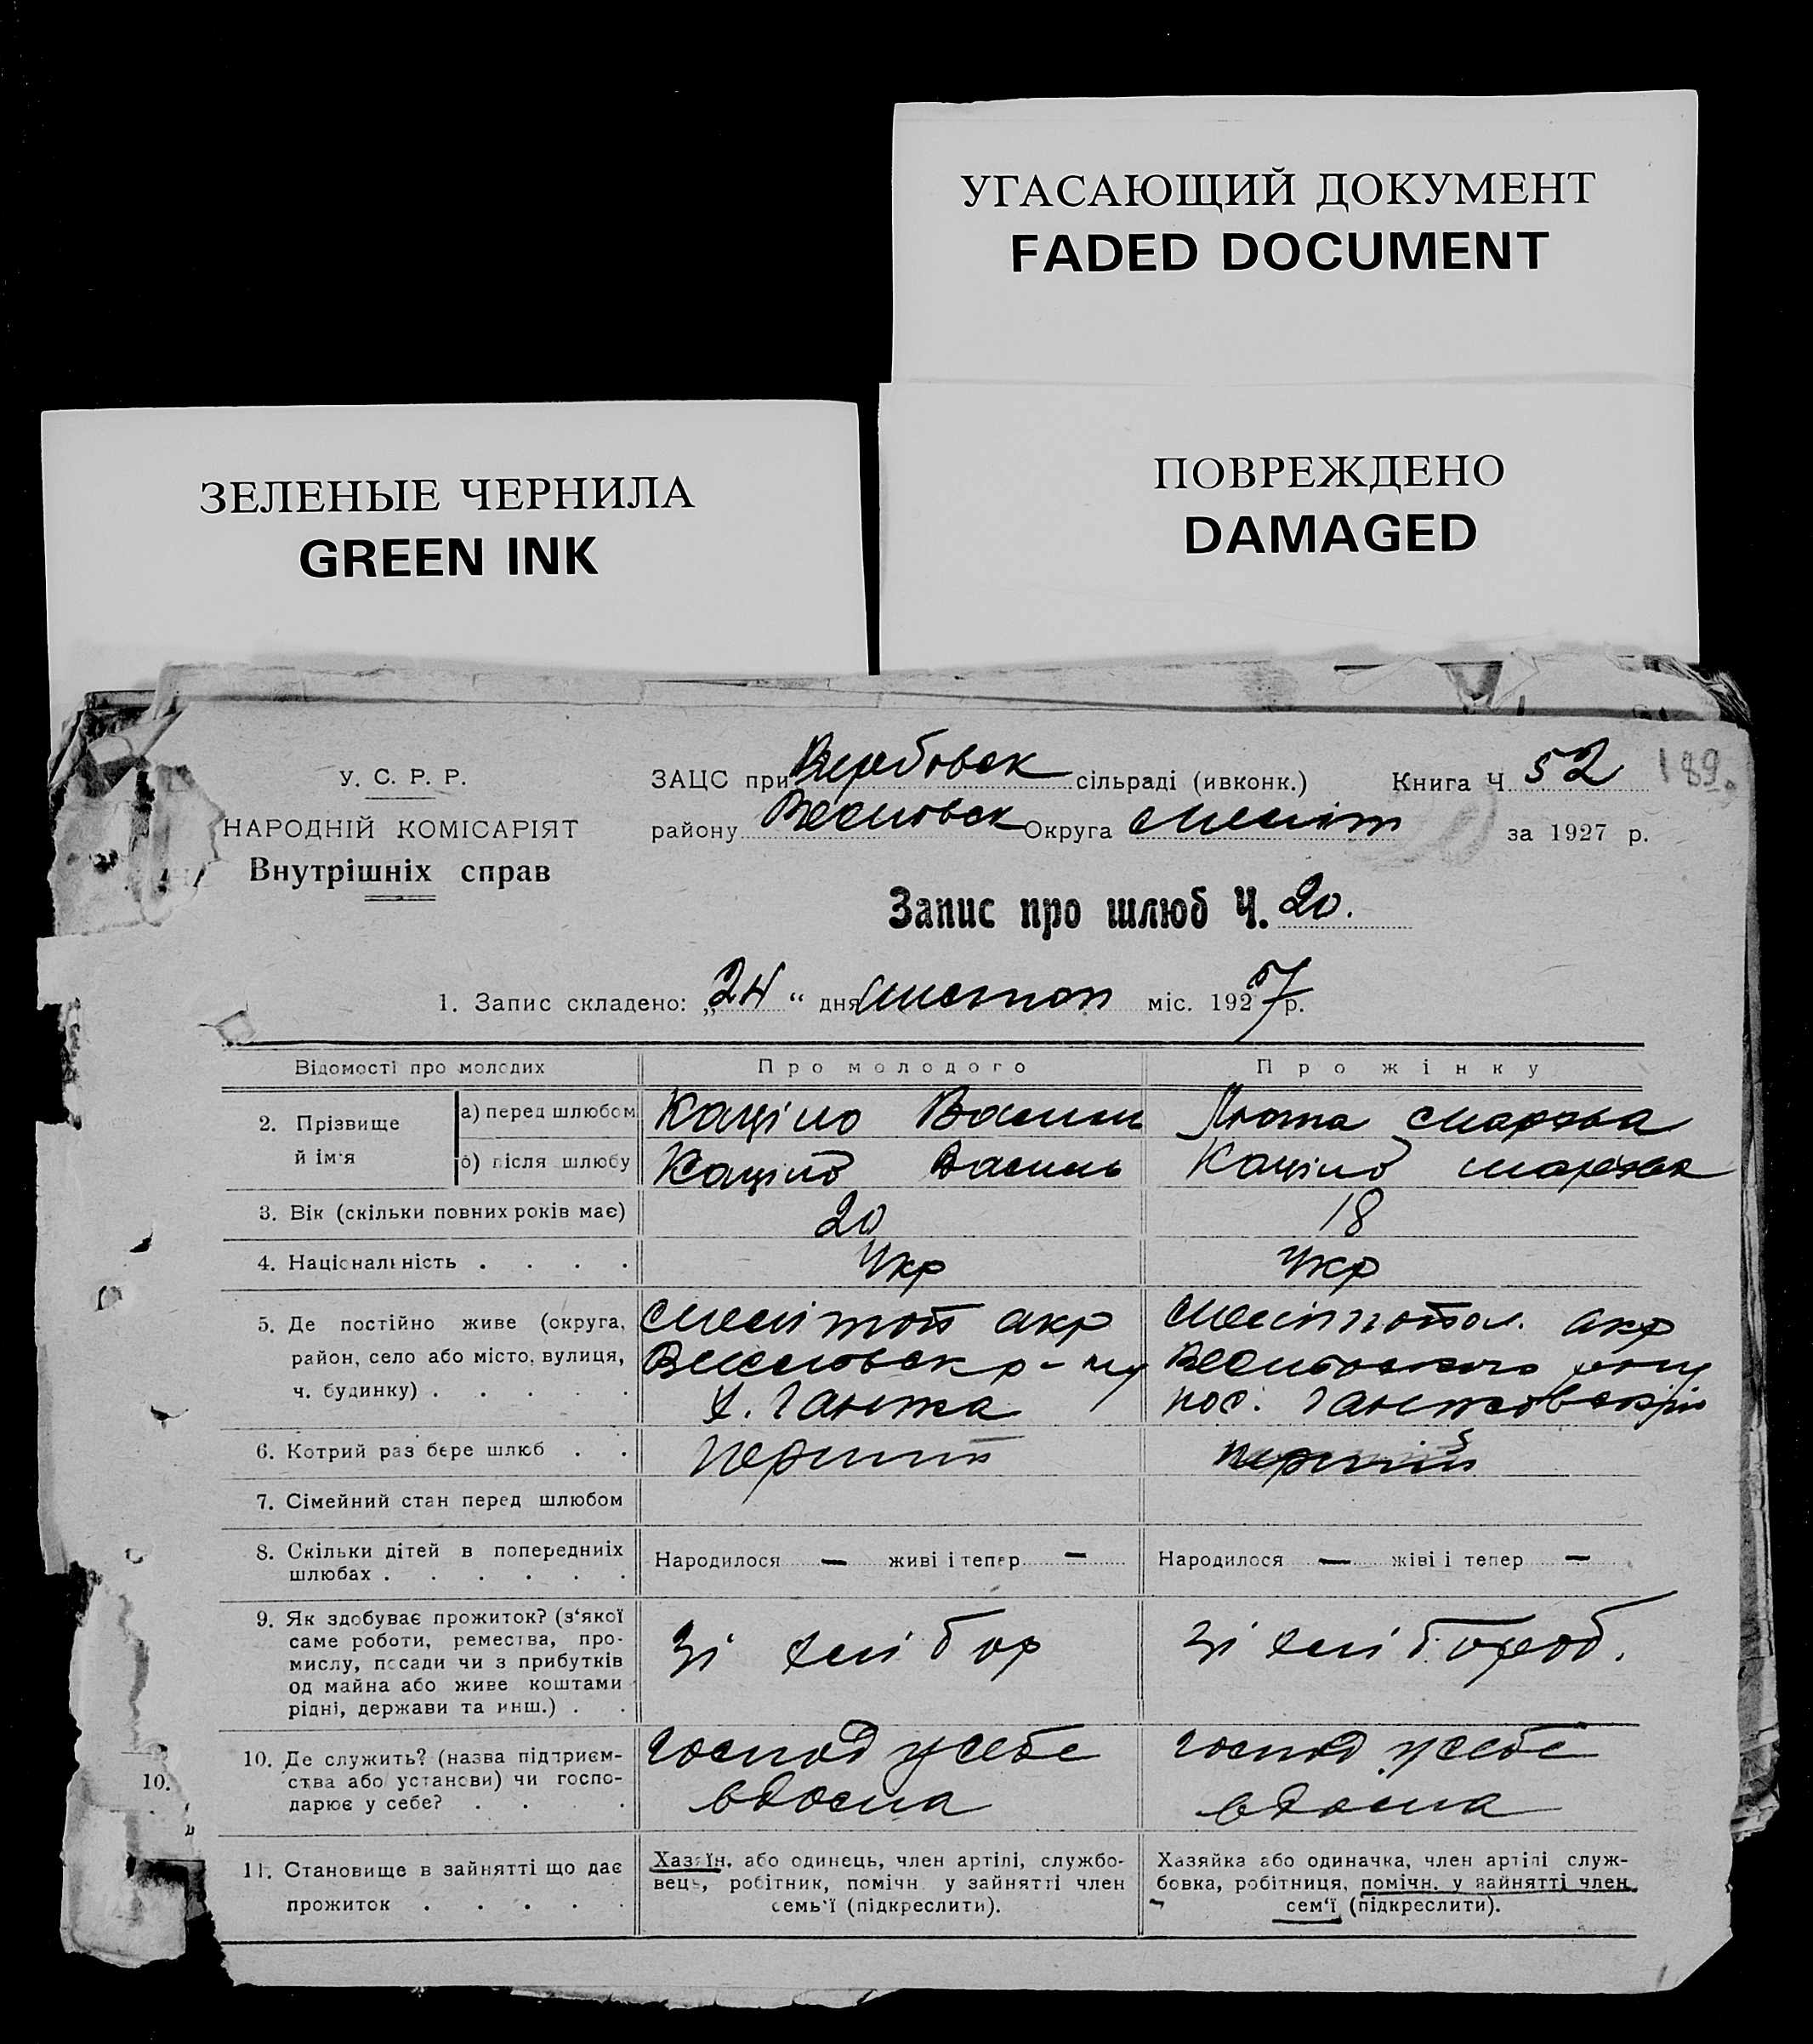 УГАСАЮЩИЙ ДОКУМЕНТ
FADED DOCUMENT
ЗЕЛЕНЫЕ ЧЕРНИЛА
GREEN INK
ПОВРЕЖДЕНО
DAMAGED
У. С. Р. Р.
НАРОДНІЙ КОМІСАРІЯТ
Внутрішніх справ
ЗАЦС при Вербовск сільраді (ивконк.) Книга Ч. 52 189
району Веселовск Округа Меліт за 1927 р.
Запис про шлюб Ч. 20.
1. Запис складено: „24“ дня листоп міс. 1927 р.
Відомості про молодих Про молодого Про жінку
2. Прізвище й ім'я
а) перед шлюбом Каціло Василь Люта Марфа
б) після шлюбу Каціло Василь Каціло Марфа
3. Вік (скільки повних років має) 20 18
4. Національність . . . . Укр Укр
5. Де постійно живе (округа,
район, село або місто, вулиця,
ч. будинку) . . . . .
Мелітоп окр
Веселовск р-ну
х. Ганжа
Мелітопол. окр
пос.
6. Котрий раз бере шлюб . . перший перший
7. Сімейний стан перед шлюбом
8. Скільки дітей в попередниіх
шлюбах . . . . . .
Народилося — живі і тепер —
Народилося — жіві і тепер —
9. Як здобуває прожиток? (з‘якої
саме роботи, ремества, про-
мислу, посади чи з прибутків
од майна або живе коштами
рідні, держави та инш.) . .
зі хлібор
зі хлібороб.
10. Де служить? (назва підприєм-
ства або установи) чи госпо-
дарює у себе? . . . .
господ у себе
вдома
господ у себе
вдома
10.
11. Становище в зайнятті що дає
прожиток . . . . .
Хазяїн, або одинець, член артілі, службо-
вець, робітник, помічн. у зайнятті член
семь‘ї (підкреслити).
Хазяйка або одиначка, член артілі служ-
бовка, робітниця, помічн. у зайнятті член
сем‘ї (підкреслити).